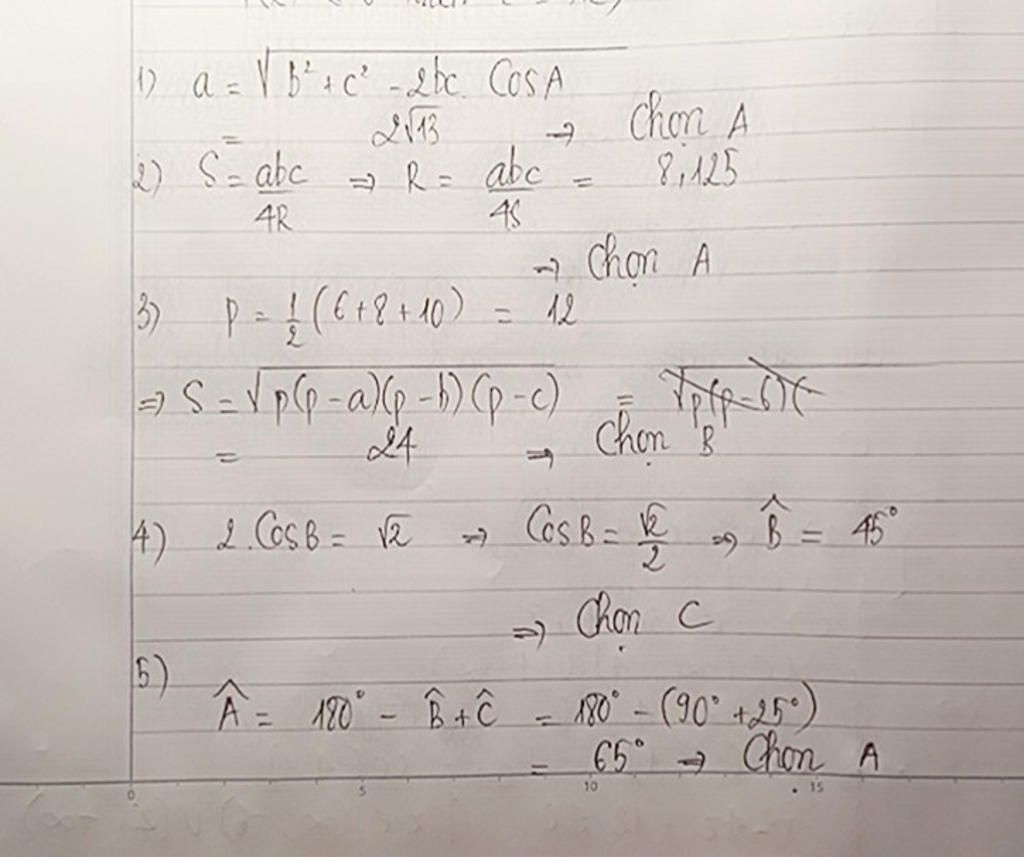 1) a = √(b² + c² - 2bc. CosA)
= 2√13 → Chọn A
2) S = abc/4R ⇒ R = abc/4S = 8,125
→ Chọn A
3) P = 1/2 (6+8+10) = 12
⇒ S = √(p(p-a)(p-b)(p-c)) = √p(p-6)(
= 24 ⇒ Chọn B
4) 2.CosB = √2 ⇒ CosB = √2/2 ⇒ B̂ = 45°
⇒ Chọn C
5)
Â = 180° - B̂ + Ĉ = 180° - (90° + 25°)
= 65° → Chọn A
0 5 10 15